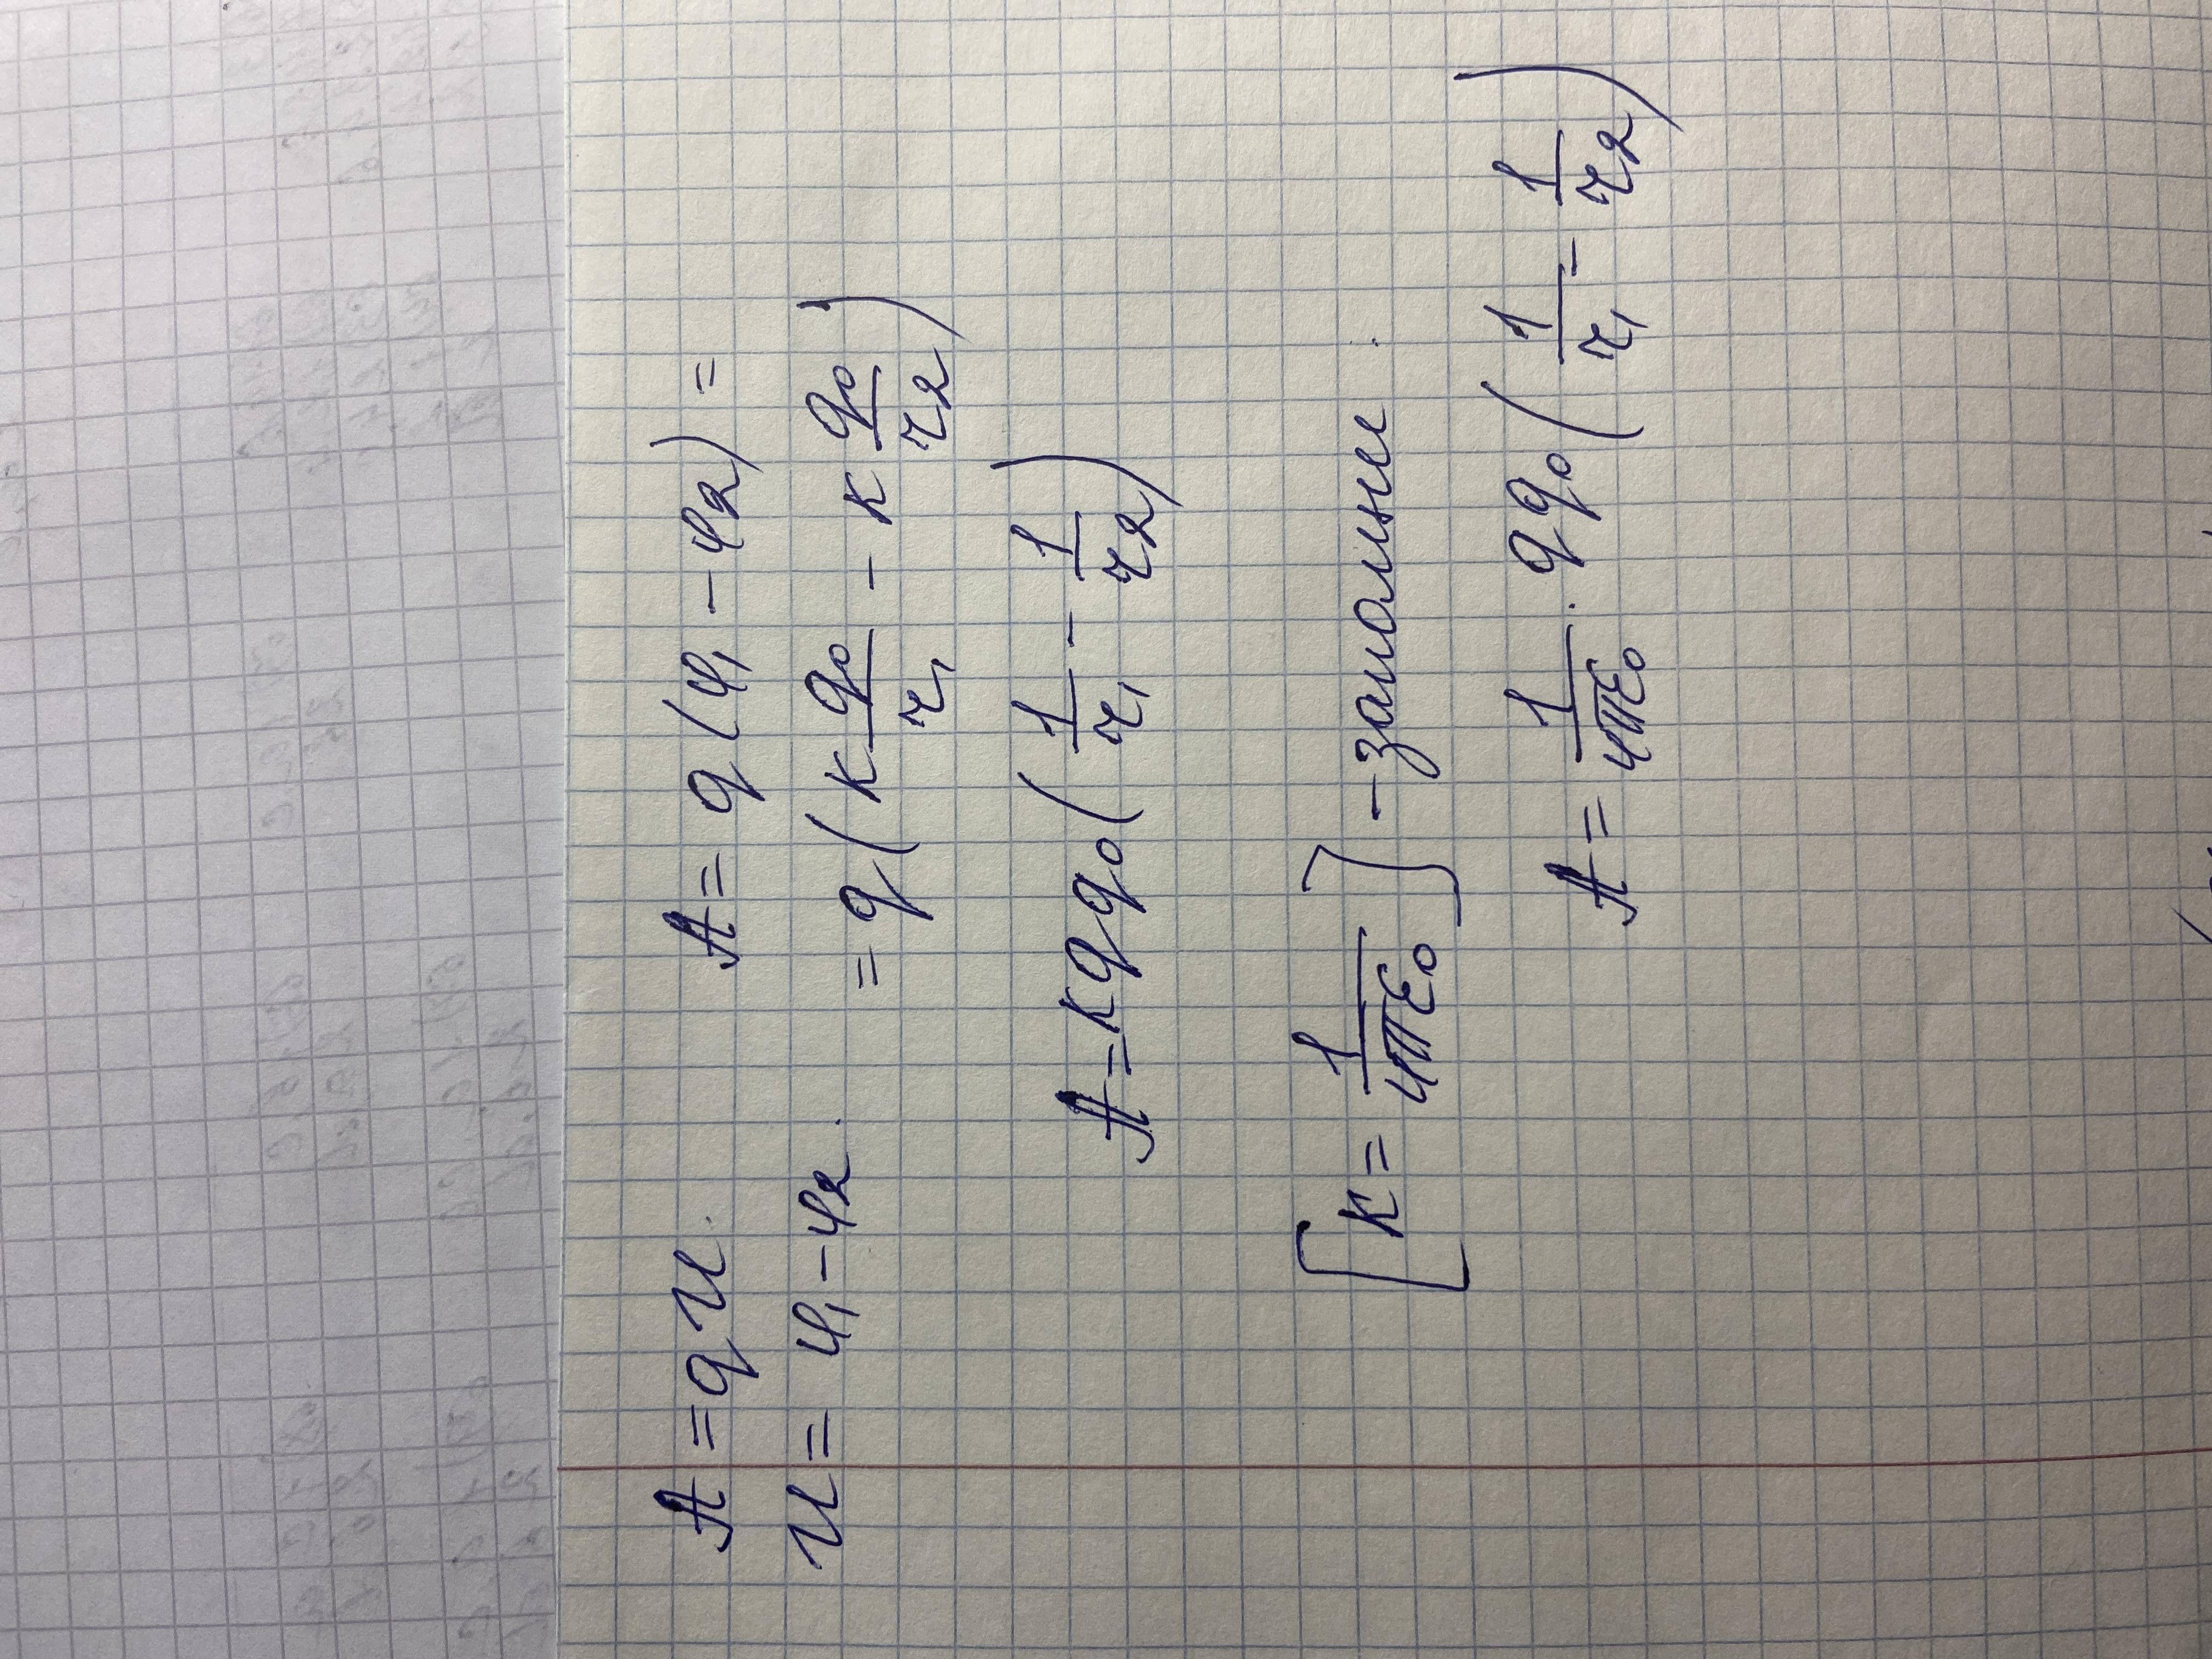 A = qU. A = q(φ₁ - φ₂) =
U = φ₁ - φ₂. = q(k q₀/r₁ - k q₀/r₂)
A = kqq₀(1/r₁ - 1/r₂)
[k = 1/4πε₀] - запомни.
A = 1/4πε₀ · qq₀(1/r₁ - 1/r₂)